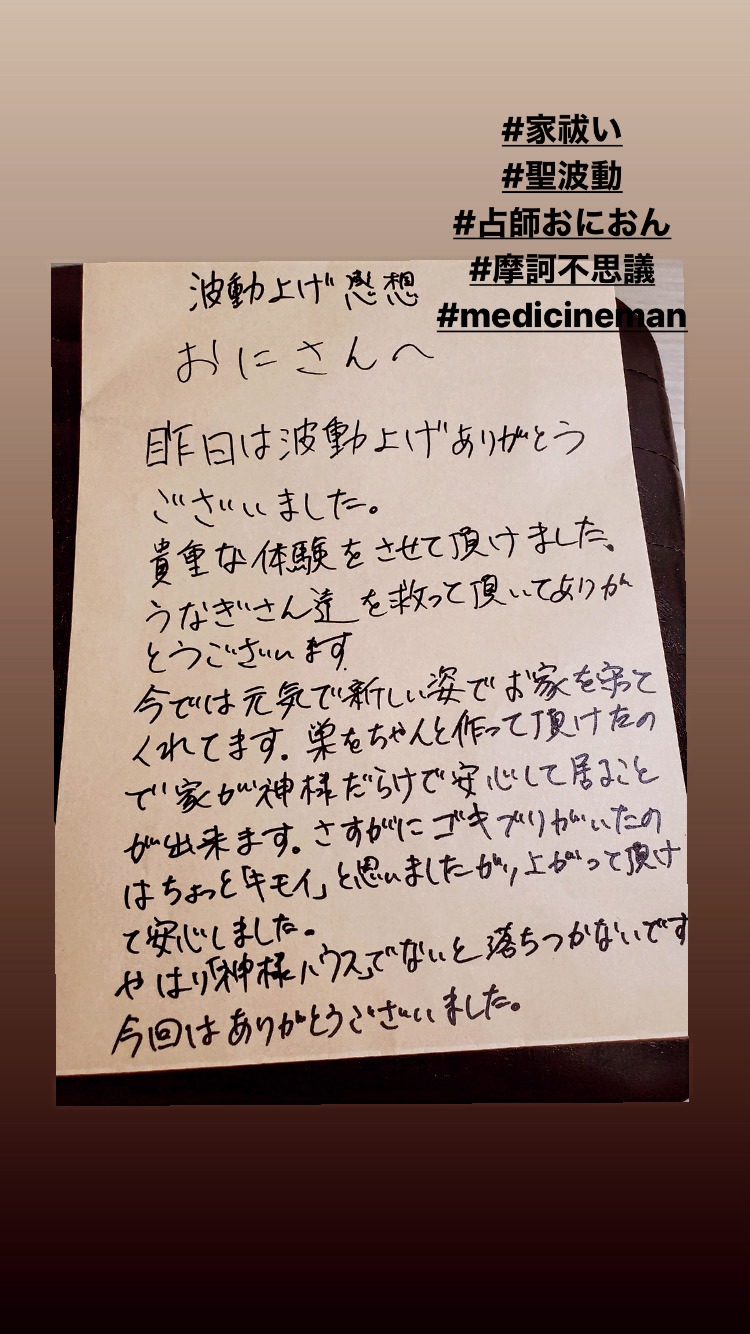 #家祓い
#聖波動
#占師おにおん
#摩訶不思議
#medicineman
波動上げ感想
おにさんへ
昨日は波動上げありがとう
ございました。
貴重な体験をさせて頂けました。
うなぎさん達を救って頂いてありが
とうございます
今では元気で新しい姿でお家を守って
くれてます。巣をちゃんと作って頂けたの
で家が神様だらけで安心して居ること
が出来ます。さすがにゴキブリがいたの
はちょっと「キモイ」と思いましたが、上がって頂け
て安心しました。
やはり「神様ハウス」でないと落ちつかないです
今回はありがとうございました。